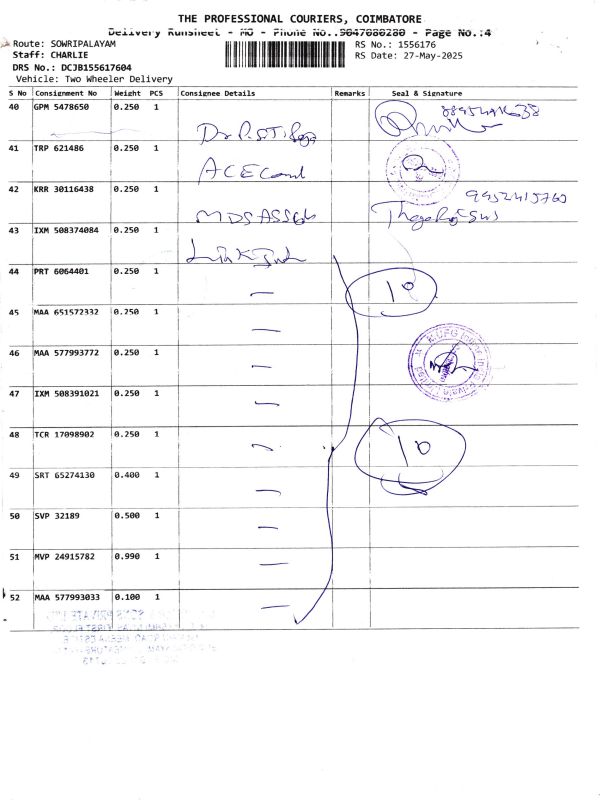 THE PROFESSIONAL COURIERS, COIMBATORE
Delivery Runsheet - MO - Phone No..9047080280 - Page No.:4
Route: SOWRIPALAYAM
RS No.: 1556176
Staff: CHARLIE
RS Date: 27-May-2025
DRS No.: DCJB155617604
Vehicle: Two Wheeler Delivery
S No Consignment No Weight PCS Consignee Details Remarks Seal & Signature
40 GPM 5478650 0.250 1
41 TRP 621486 0.250 1
42 KRR 30116438 0.250 1
43 IXM 508374084 0.250 1
44 PRT 6064401 0.250 1 — 10
45 MAA 651572332 0.250 1 —
46 MAA 577993772 0.250 1 —
47 IXM 508391021 0.250 1 —
48 TCR 17098902 0.250 1 — 10
49 SRT 65274130 0.400 1 —
50 SVP 32189 0.500 1 —
51 MVP 24915782 0.990 1 —
52 MAA 577993033 0.100 1 —